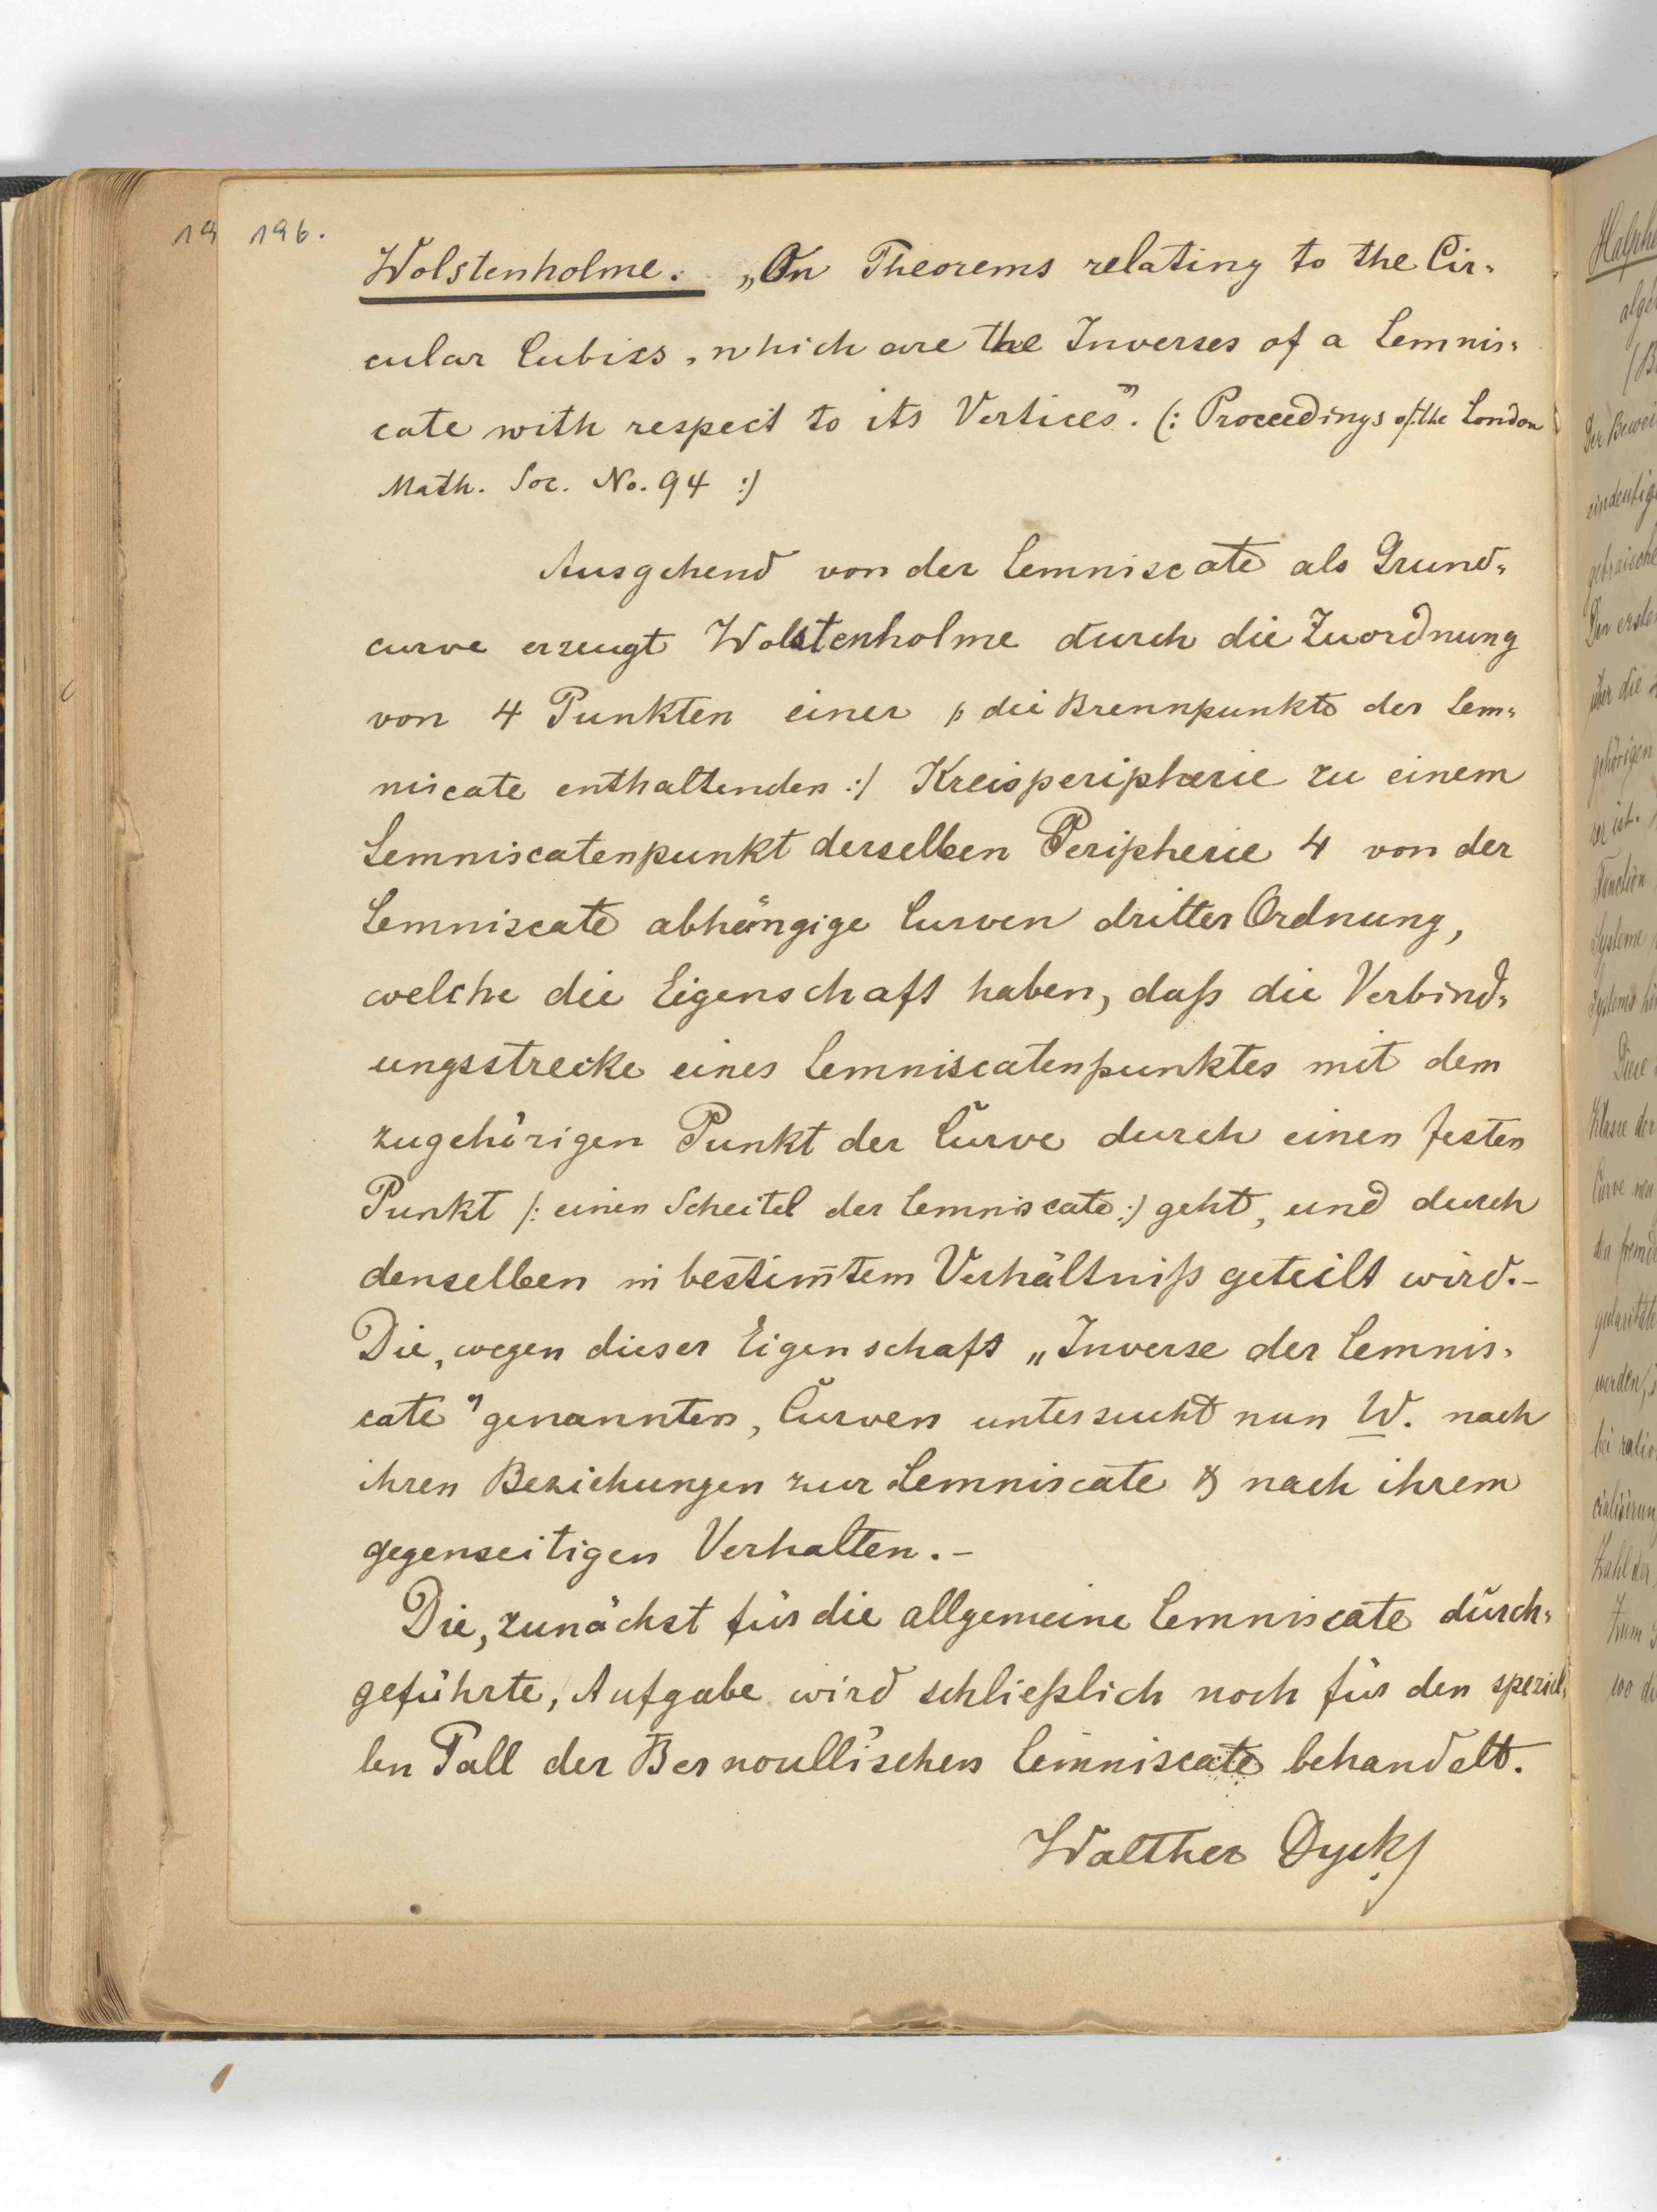 19 196.
Wolstenholme. „On Theorems relating to the Cir-
cular Cubics, which are the Inverses of a Lemnis-
cate with respect to its Vertices". (: Proceedings of the London
Math. Soc. No. 94 :)
Ausgehend von der Lemniscate als Grund-
curve erzeugt Wolstenholme durch die Zuordnung
von 4 Punkten einer /: die Brennpunkte der Lem-
nicate enthaltenden :/ Kreisperipherie zu einem
Lemniscatenpunkt derselben Peripherie 4 von der
Lemniscate abhängige Curven dritter Ordnung,
welche die Eigenschaft haben, daß die Verbind-
ungsstrecke eines Lemniscatenpunktes mit dem
zugehörigen Punkt der Curve durch einen festen
Punkt /: einen Scheitel der Lemniscate :/ geht, und durch
denselben in bestim̄tem Verhältniß geteilt wird.–
Die, wegen dieser Eigenschaft „Inverse der Lemnis-
cate" genannten, Curven untersucht nun W. nach
ihren Beziehungen zur Lemniscate & nach ihrem
gegenseitigen Verhalten.–
Die, zunächst für die allgemeine Lemniscate durch-
geführte, Aufgabe wird schließlich noch für den speziel-
len Fall der Bernoulli'schen Lemniscate behandelt.
Walther Dyck
Der Bewei
eindeutig
Den ersten
über die
gehörigen
Function
Systeme
Systems
Klasse der
werden,
Zahl der
Zum
wo di